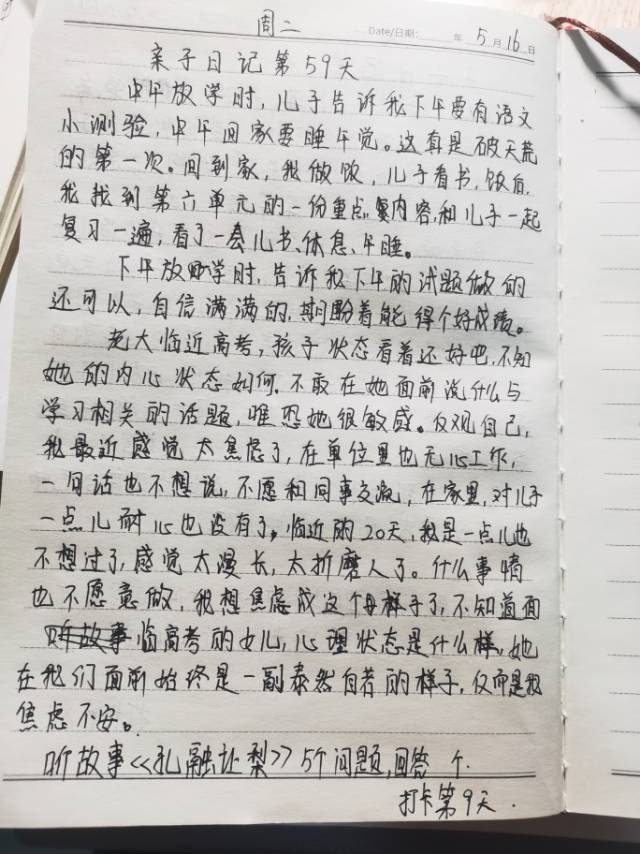 周二
Date/日期: 年 5 月 16 日
亲子日记第59天
中午放学时,儿子告诉我下午要有语文
小测验,中午回家要睡午觉。这真是破天荒
的第一次。回到家,我做饭,儿子看书,饭后,
我找到第六单元的一份重点内容,和儿子一起
复习一遍,看了一会儿书、休息、午睡。
下午放学时,告诉我下午的试题做的
还可以,自信满满的,期盼着能得个好成绩。
老大临近高考,孩子状态看着还好吧,不知
她的内心状态如何,不敢在她面前说什么与
学习相关的话题,唯恐她很敏感。反观自己,
我最近感觉太焦虑了,在单位里也无心工作,
一句话也不想说,不愿和同事交流,在家里,对儿子
一点儿耐心也没有了。临近的20天,我是一点儿也
不想过了,感觉太漫长,太折磨人了。什么事情
也不愿意做,我想焦虑成这个样子了,不知道面
听故事临高考的女儿,心理状态是什么样,她
在我们面前始终是一副泰然自若的样子,反而是我
焦虑不安。
听故事《孔融让梨》5个问题,回答 个.
打卡第9天.